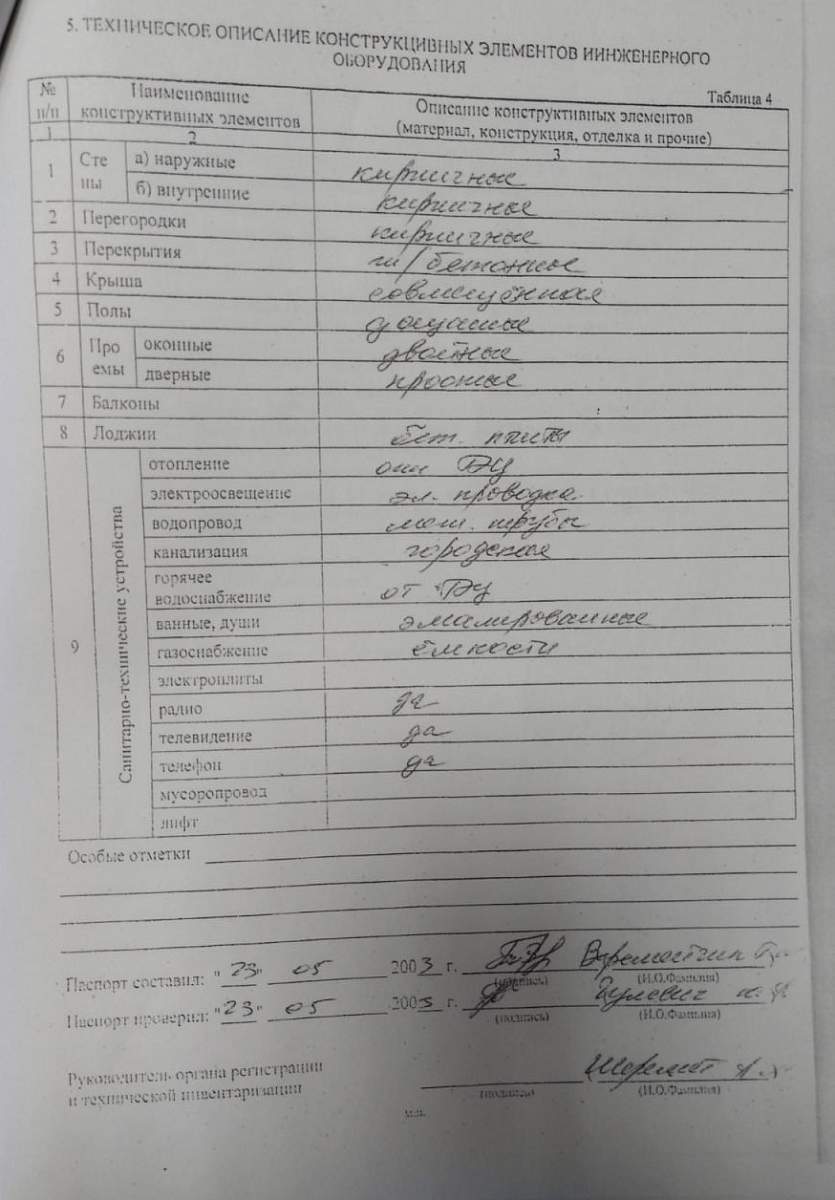 5. ТЕХНИЧЕСКОЕ ОПИСАНИЕ КОНСТРУКЦИВНЫХ ЭЛЕМЕНТОВ ИИНЖЕНЕРНОГО
ОБОРУДОВАНИЯ
Таблица 4
№ п/п Наименование конструктивных элементов Описание конструктивных элементов (материал, конструкция, отделка и прочие)
1 2 3
1 Стены а) наружные кирпичные
б) внутренние кирпичные
2 Перегородки кирпичные
3 Перекрытия ж/бетонные
4 Крыша совмещённая
5 Полы дощатые
6 Проемы оконные двойные
дверные простые
7 Балконы
8 Лоджии бет. плиты
9 Санитарно-технические устройства
отопление ТЭЦ
электроосвещение эл. проводка
водопровод трубы
канализация городская
горячее водоснабжение от ТЭЦ
ванные, души эмалированные
газоснабжение ёмкости
электроплиты
радио да
телевидение да
телефон да
мусоропровод
лифт
Особые отметки
Паспорт составил: "23" 05 2003 г.
(подпись) (И.О.Фамилия)
Паспорт проверил: "23" 05 2003 г.
(подпись) (И.О.Фамилия)
Руководитель органа регистрации
и технической инвентаризации Шеремет
(подпись) (И.О.Фамилия)
м.п.